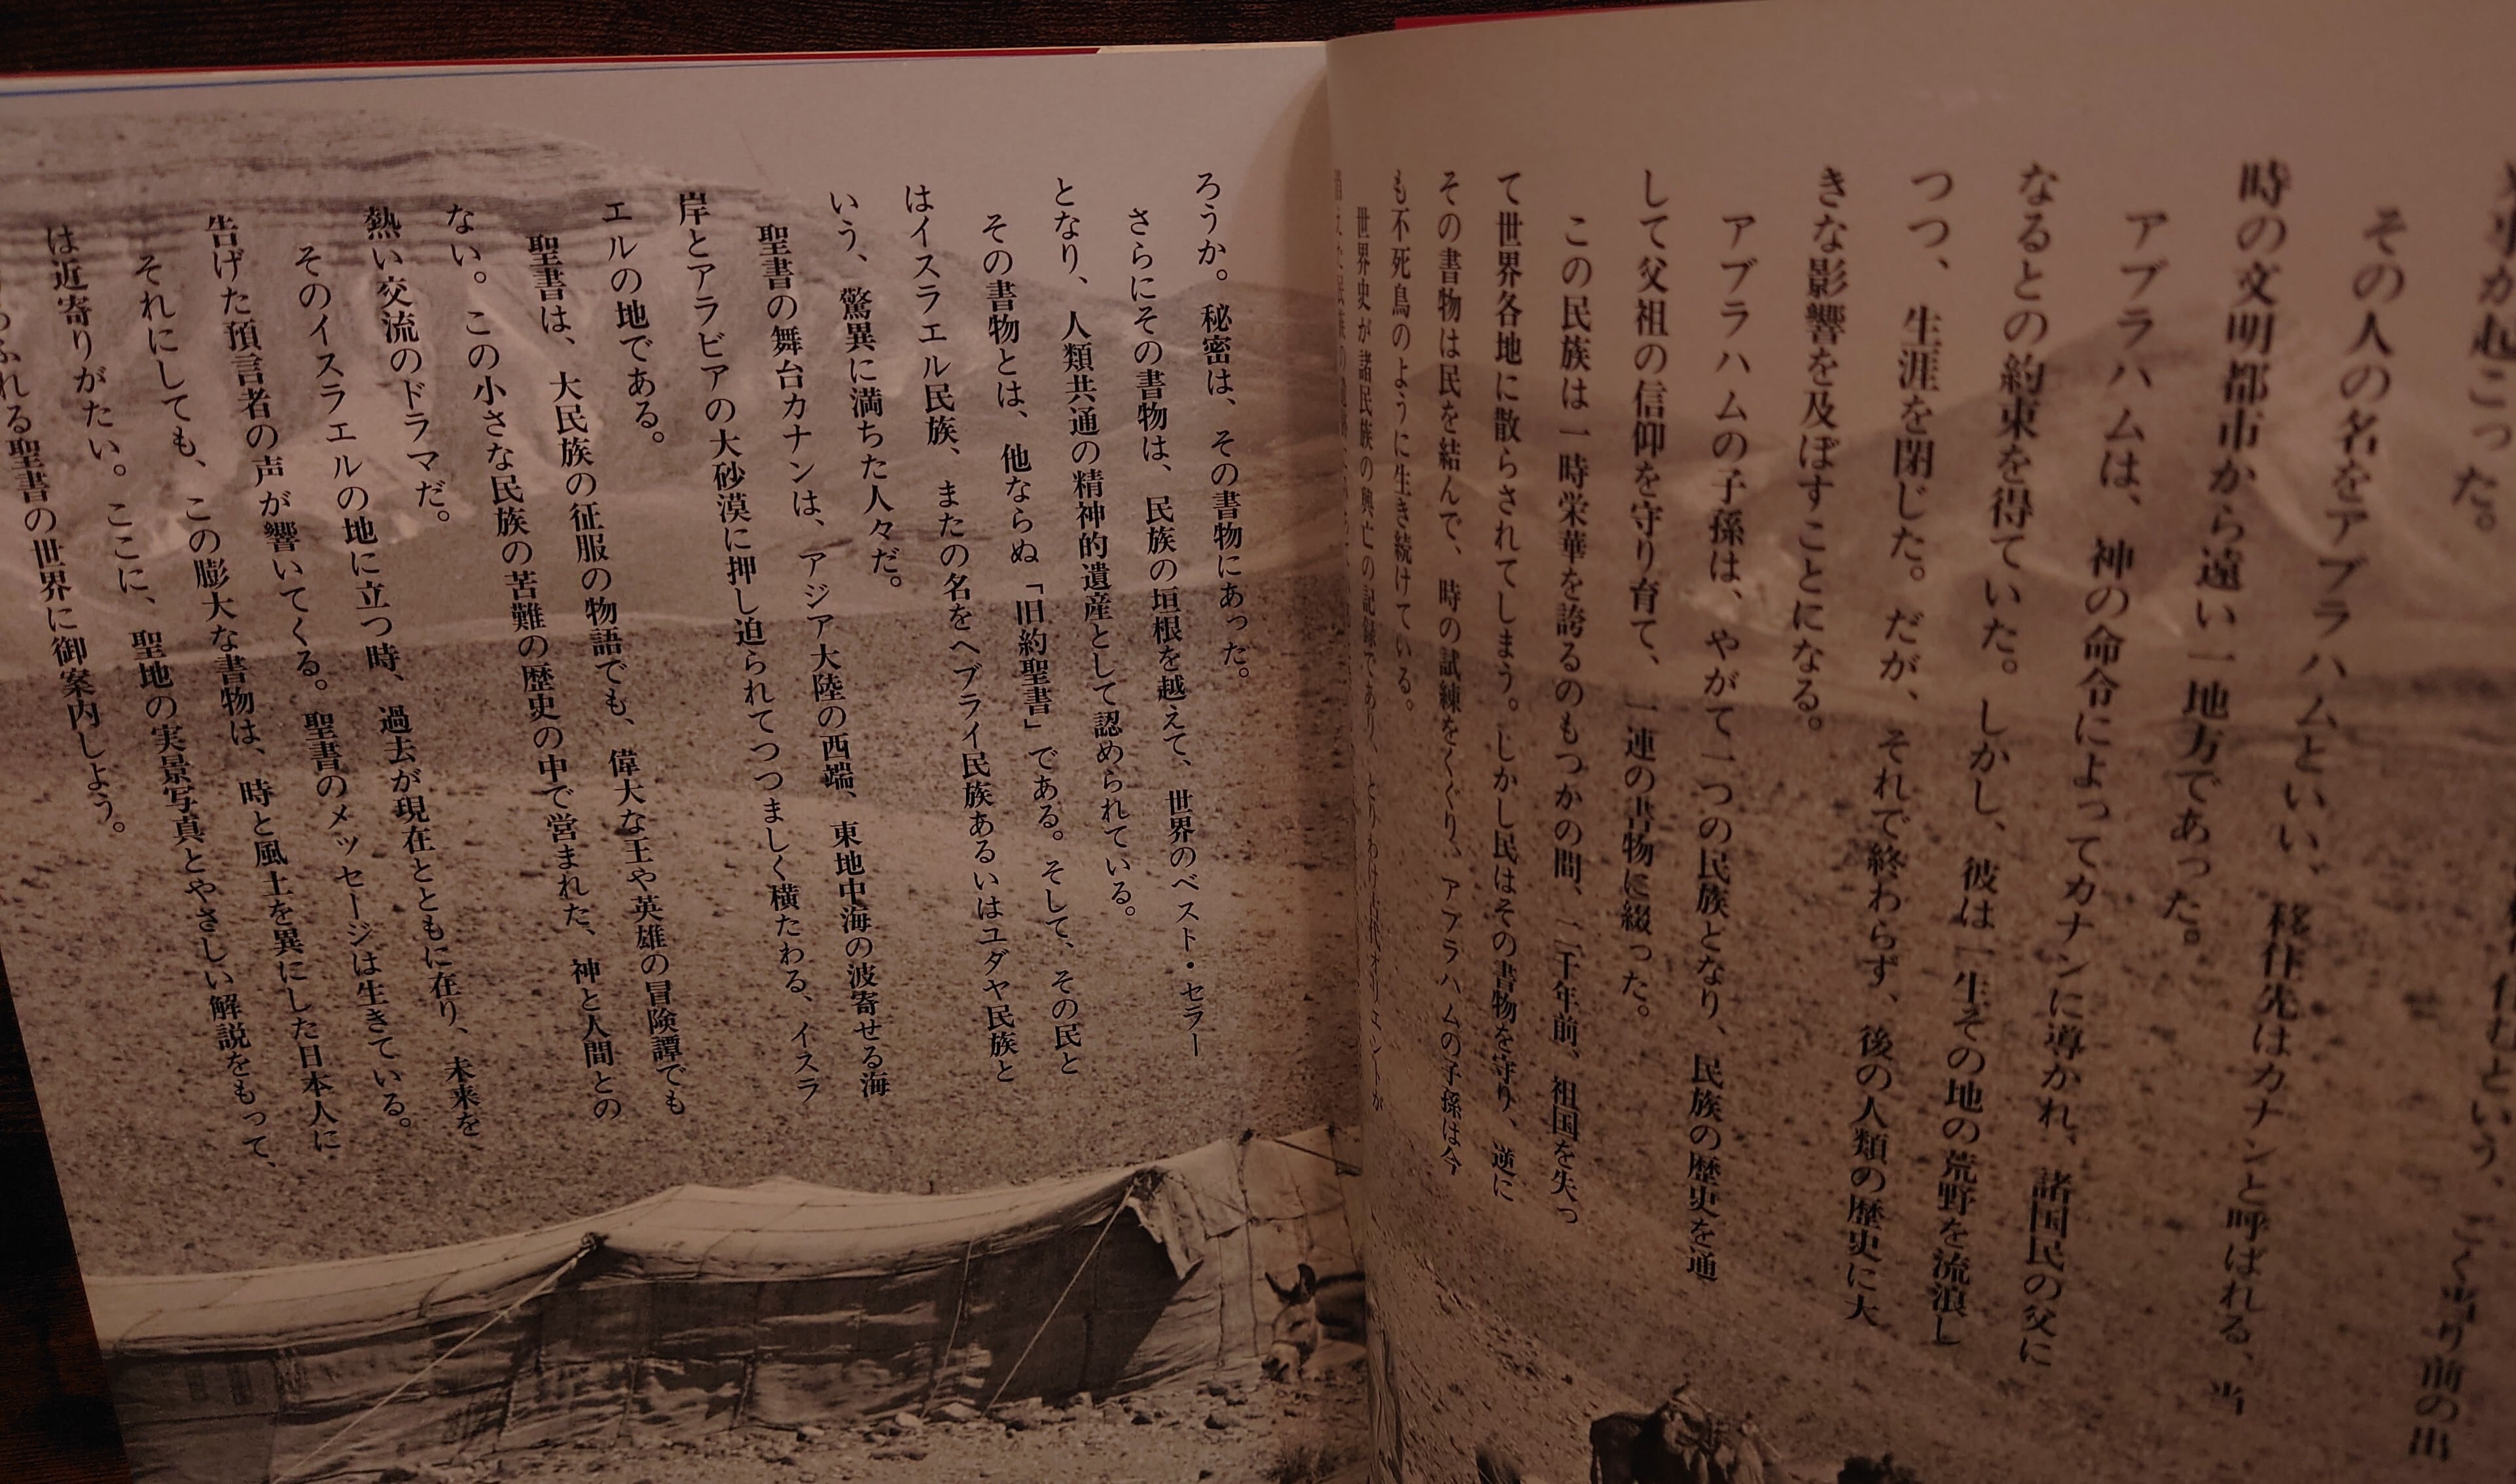 来事が起こった。
その人の名をアブラハムといい、移住先はカナンと呼ばれる、当
時の文明都市から遠い一地方であった。
アブラハムは、神の命令によってカナンに導かれ、諸国民の父に
なるとの約束を得ていた。しかし、彼は一生その地の荒野を流浪し
つつ、生涯を閉じた。だが、それで終わらず、後の人類の歴史に大
きな影響を及ぼすことになる。
アブラハムの子孫は、やがて一つの民族となり、民族の歴史を通
して父祖の信仰を守り育て、一連の書物に綴った。
この民族は一時栄華を誇るのもつかの間、二千年前、祖国を失っ
て世界各地に散らされてしまう。しかし民はその書物を守り、逆に
その書物は民を結んで、時の試練をくぐり、アブラハムの子孫は今
も不死鳥のように生き続けている。
世界史が諸民族の興亡の記録であり、とりわけ古代オリエントが
ろうか。秘密は、その書物にあった。
さらにその書物は、民族の垣根を越えて、世界のベスト・セラー
となり、人類共通の精神的遺産として認められている。
その書物とは、他ならぬ「旧約聖書」である。そして、その民と
はイスラエル民族、またの名をヘブライ民族あるいはユダヤ民族と
いう、驚異に満ちた人々だ。
聖書の舞台カナンは、アジア大陸の西端、東地中海の波寄せる海
岸とアラビアの大砂漠に押し迫られてつつましく横たわる、イスラ
エルの地である。
聖書は、大民族の征服の物語でも、偉大な王や英雄の冒険譚でも
ない。この小さな民族の苦難の歴史の中で営まれた、神と人間との
熱い交流のドラマだ。
そのイスラエルの地に立つ時、過去が現在とともに在り、未来を
告げた預言者の声が響いてくる。聖書のメッセージは生きている。
それにしても、この膨大な書物は、時と風土を異にした日本人に
は近寄りがたい。ここに、聖地の実景写真とやさしい解説をもって、
ふれる聖書の世界に御案内しよう。